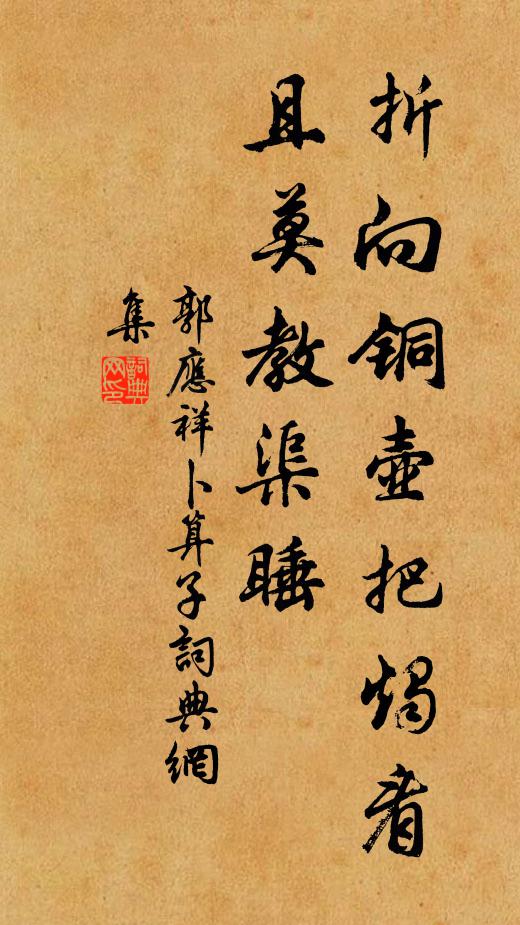 折向铜壶把烛看
且莫教渠睡
郭應祥卜算子詞典網
集
詞典网印